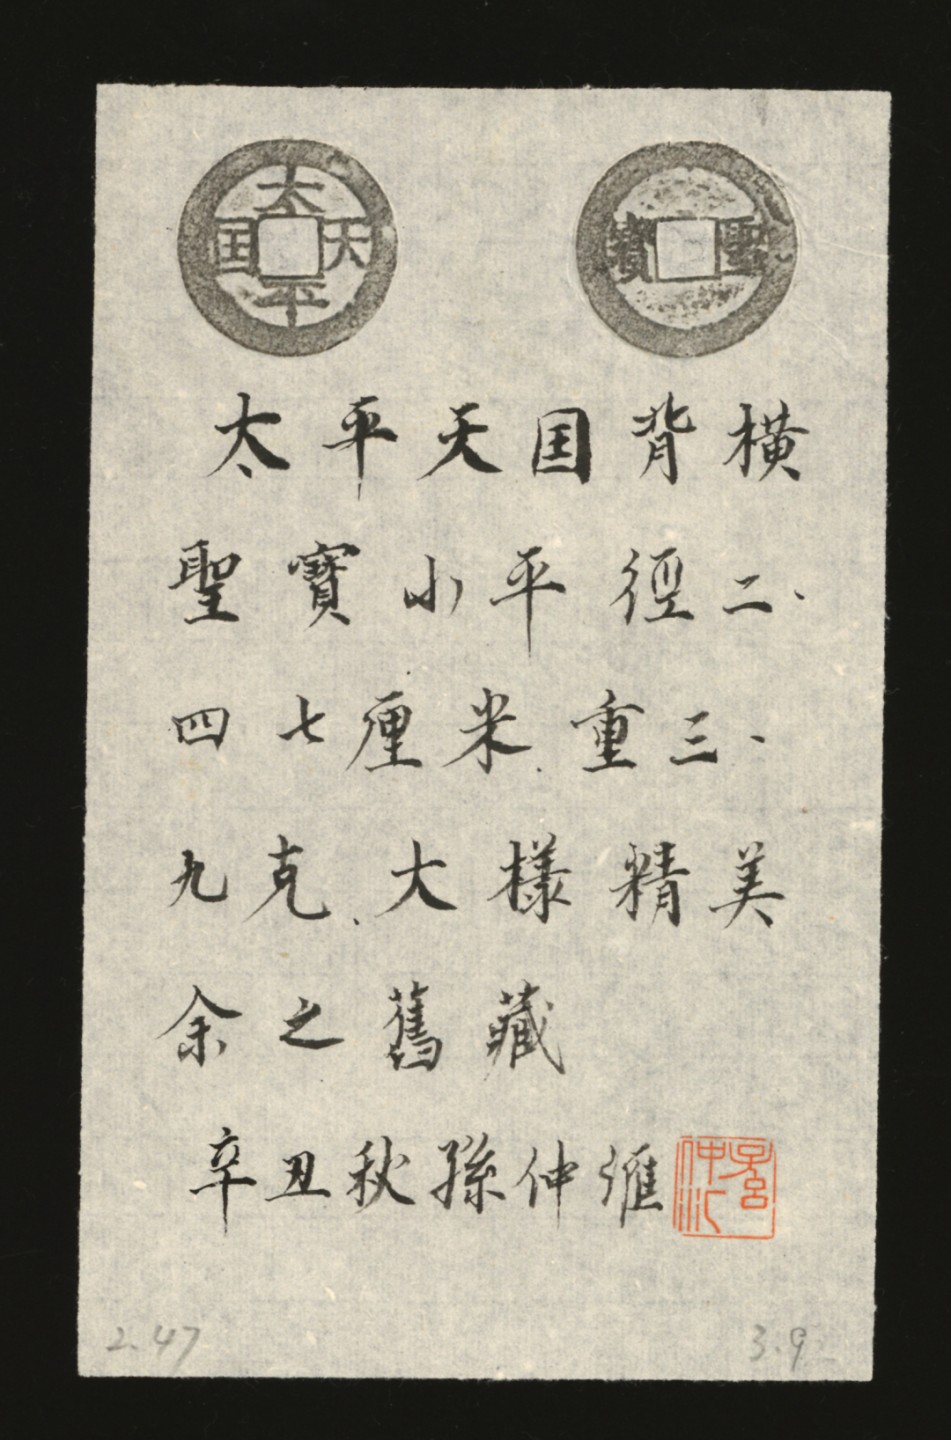 太平天囯
聖寶
太平天囯背橫
聖寶小平徑二·
四七厘米.重三·
九克、大樣精美
余之舊藏
辛丑秋孫仲滙
2.47
3.9